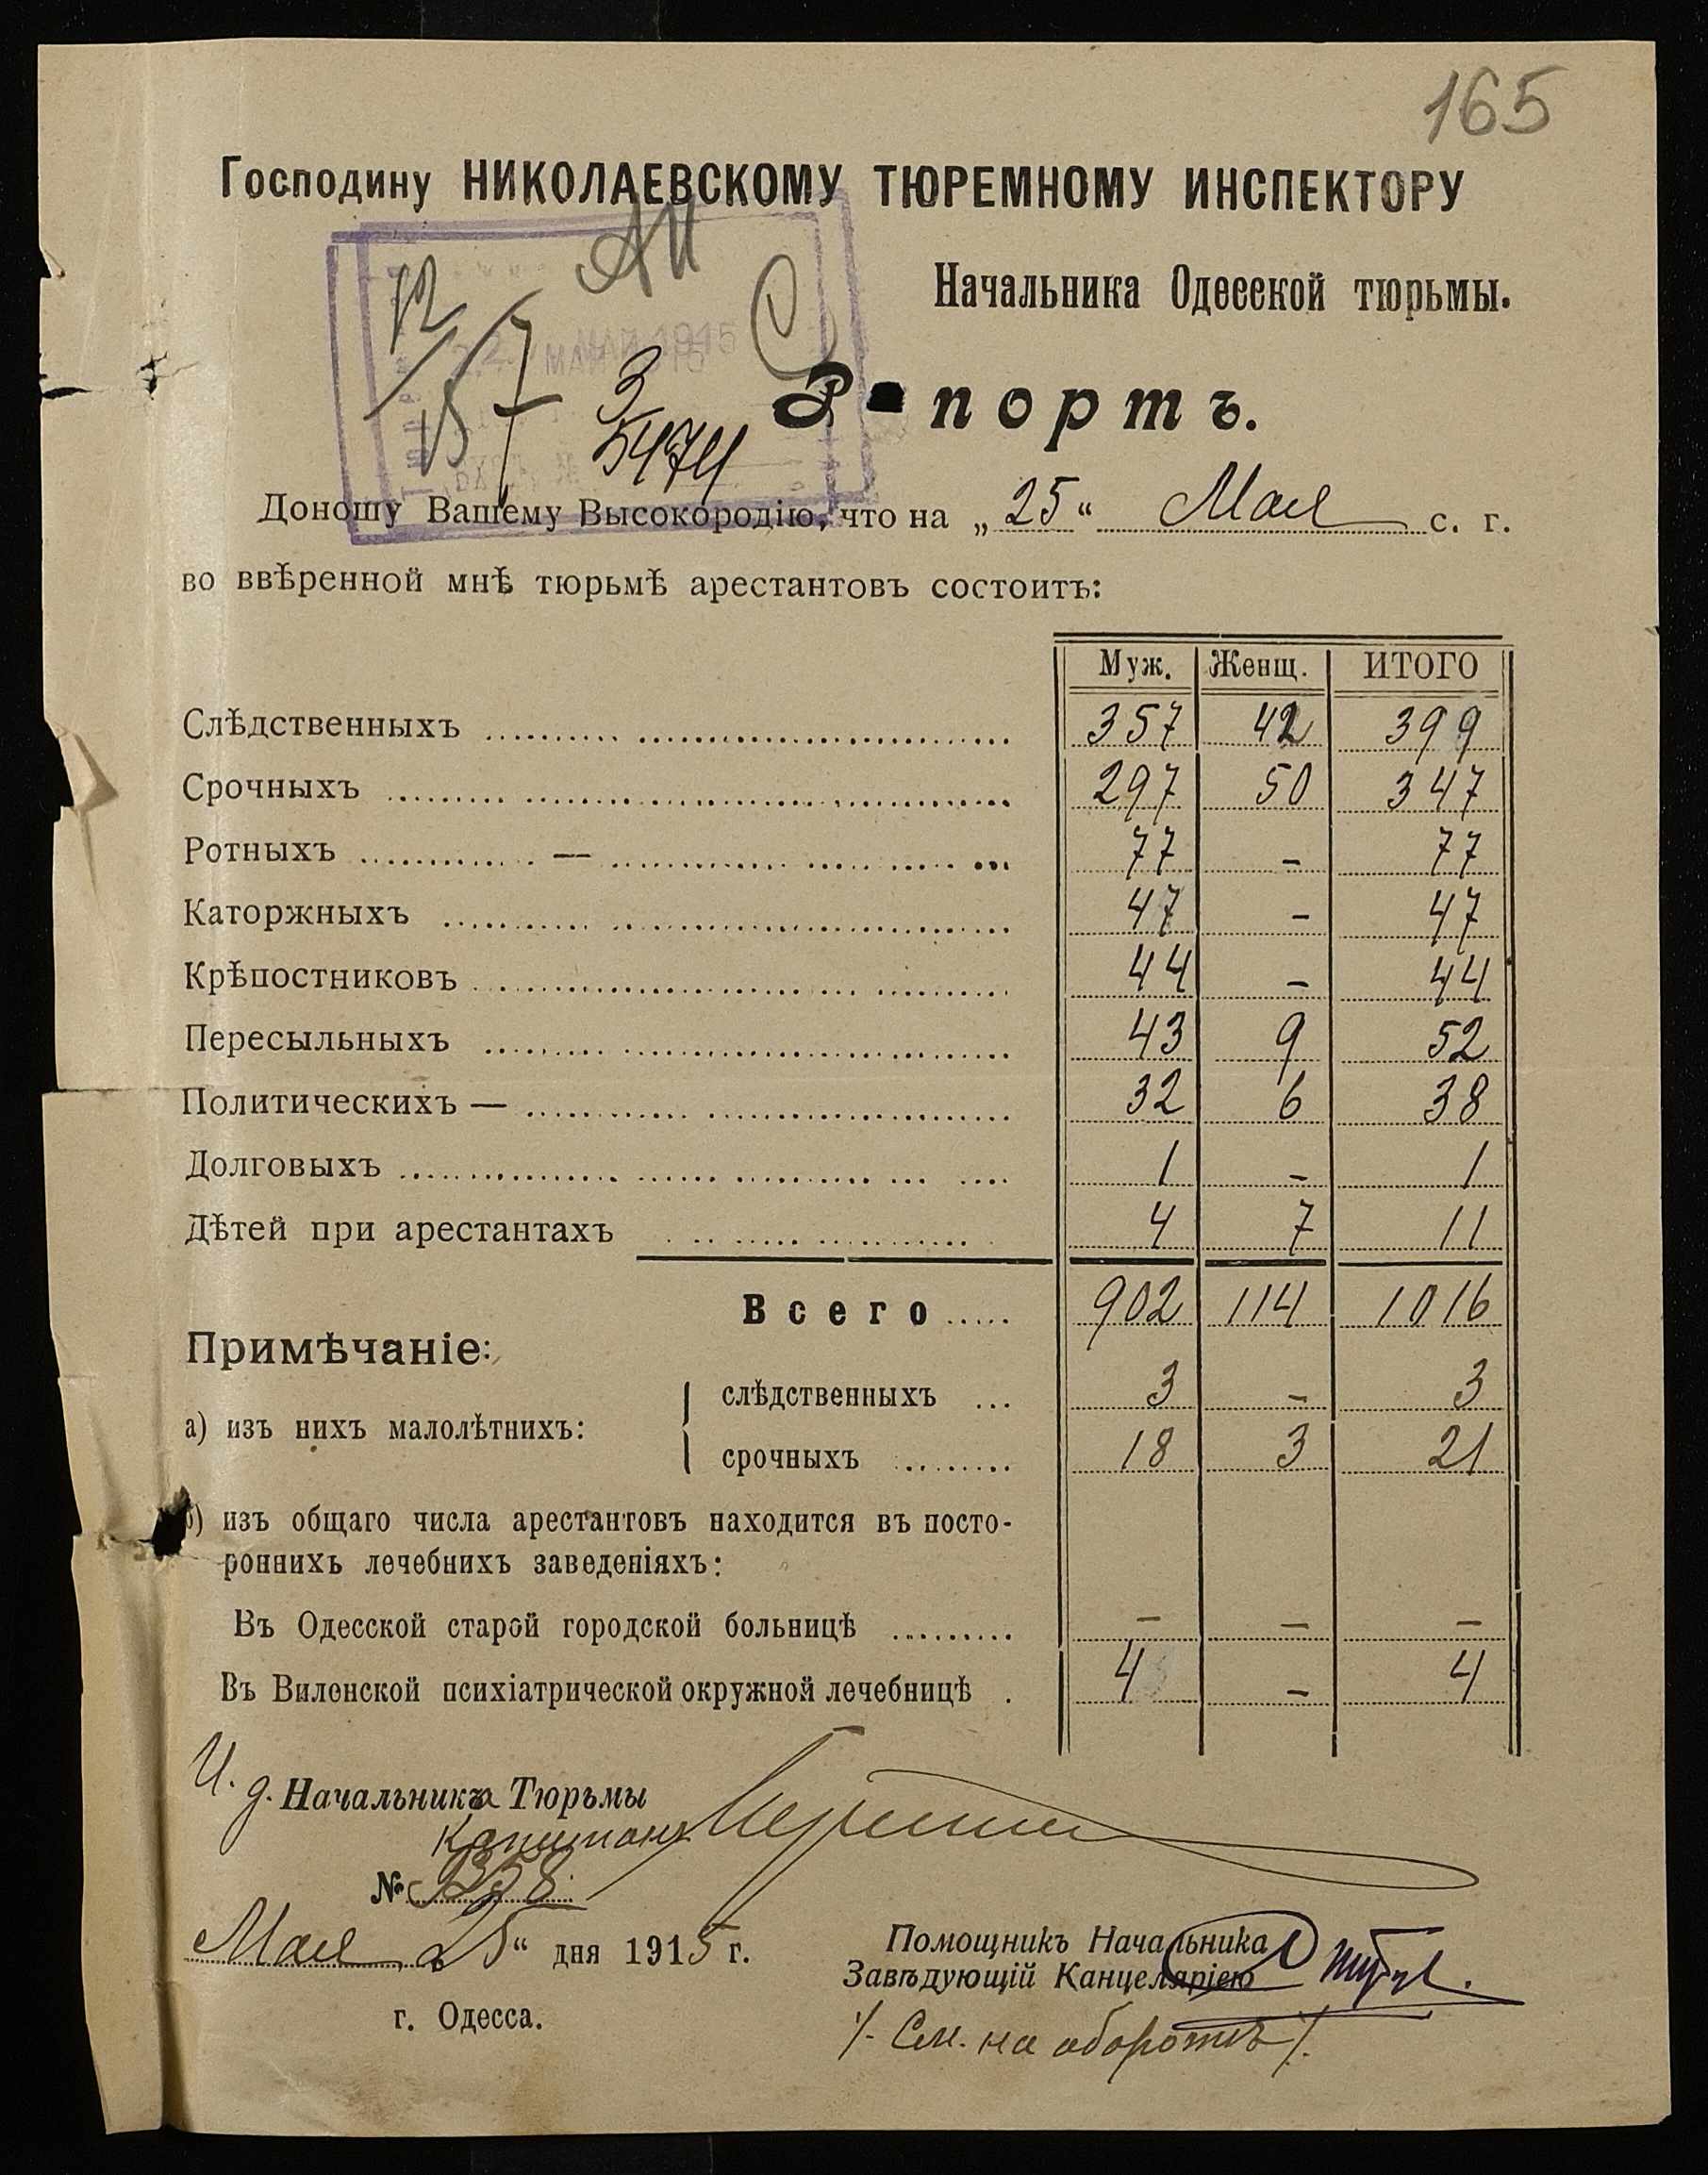 165
Господину НИКОЛАЕВСКОМУ ТЮРЕМНОМУ ИНСПЕКТОРУ
Начальника Одесской тюрьмы.
МАЙ 1915
3
5474
Р портъ.
Доношу Вашему Высокородію, что на „25“ Мая с. г.
во ввѣренной мнѣ тюрьмѣ арестантовъ состоитъ:
Муж. Женщ. ИТОГО
Слѣдственныхъ 357 42 399
Срочныхъ 297 50 347
Ротныхъ — 77 - 77
Каторжныхъ 47 - 47
Крѣпостниковъ 44 - 44
Пересыльныхъ 43 9 52
Политическихъ — 32 6 38
Долговыхъ 1 - 1
Дѣтей при арестантахъ 4 7 11
Всего 902 114 1016
Примѣчаніе:
слѣдственныхъ 3 - 3
а) изъ нихъ малолѣтнихъ:
срочныхъ 18 3 21
б) изъ общаго числа арестантовъ находится въ посто-
роннихъ лечебнихъ заведеніяхъ:
Въ Одесской старой городской больницѣ - - -
Въ Виленской психіатрической окружной лечебницѣ 4 - 4
И. д. Начальника Тюрьмы
Капитанъ
№ 358
Мая 25“ дня 1915 г.
Помощникъ Начальника
Завѣдующій Канцеляріею
г. Одесса.
/. См. на оборотѣ /.